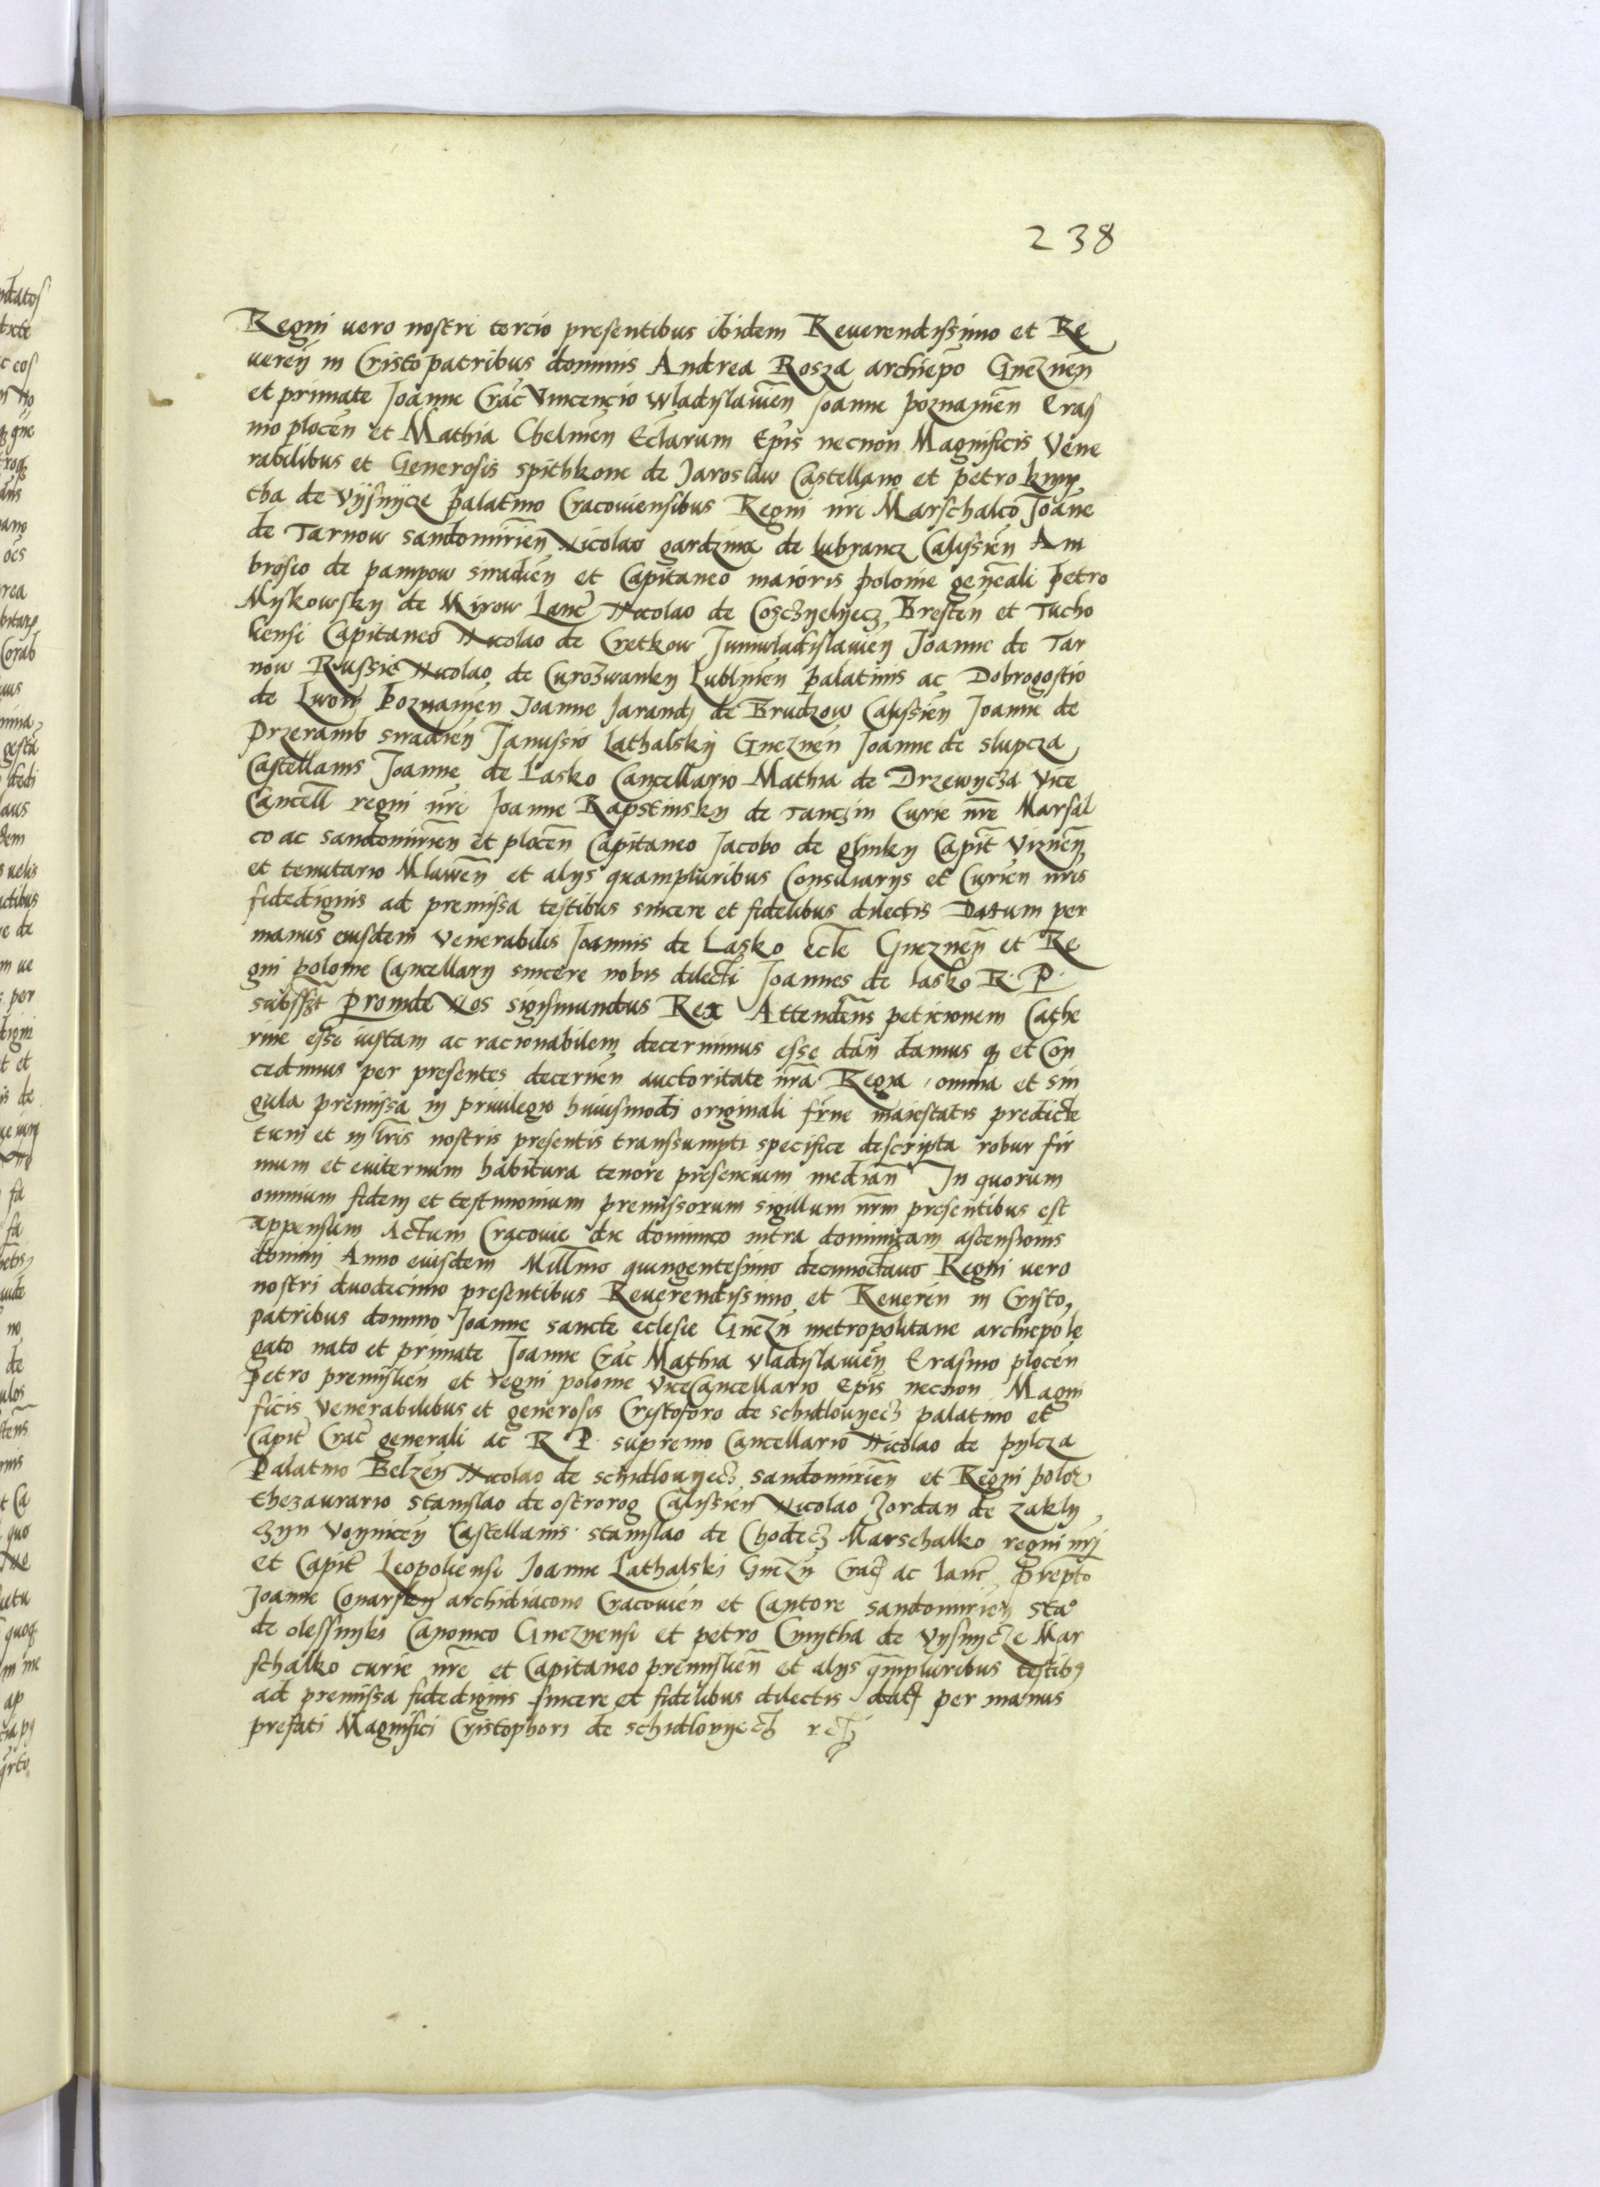 238
Regni vero nostri tercio presentibus ibidem Reverendissimo et Re
verēn in Cristo patribus dominis Andrea Rosza archiepō Gneznēn
et primate Joanne Crac̄ Vincencio Wladislaviēn Joanne poznaniēn Eras
mo plocēn et Mathia Chelmēn Eclarum Epis necnon Magnificis Vene
rabilibus et Generosis spithkone de Jaroslaw Castellano et petro kmy
tha de Vyśnycze palatino Cracoviensibus Regni nri Marschalco Joāne
de Tarnow sandomiriēn Nicolao gardzina de lubrancz Calissiēn Am
brosio de pampow siradiēn et Capitaneo maioris polonie geneali petro
Myskowsky de Mirow Lanc̄ Nicolao de Cosczyelyecz Bresten et Tucho
liensi Capitaneo Nicolao de Cretkow Juniwladislaviēn Joanne de Tar
now Russie Nicolao de Curozwanky Lublynēn palatinis ac Dobrogostio
de Lwow Poznaniēn Joanne Jarandj de Brudzow Calissiēn Joanne de
Przeramb siradiēn Janussio Lathalsky Gneznēn Joanne de slupcza
Castellanis Joanne de Lasko Cancellario Mathia de Drzewycza Vice
Cancell regni nri Joanne Rapstinsky de Tanczin Curie nre Marsal
co ac sandomiriēn et plocēn Capitaneo Jacobo de glinky Capit Viznēn
et tenutario Mlawēn et alys quampluribus Consiliarys et Curiēn nris
fidedignis ad premissa testibus sincere et fidelibus dilectis Datum per
manus eiusdem Venerabilis Joannis de Lasko ecle Gneznēn et Re
gni polonie Cancellary sincere nobis dilecti Joannes de lasko R. P.
subsst Proinde Nos Sigismundus Rex Attendēns peticionem Cathe
rine esse iustam ac racionabilem decernimus esse dān damus q et Con
cedimus per presentes decernēn auctoritate nra Regia omnia et sin
gula premissa in privilegio huiusmodi originali frne maiestatis predicte
tum et in lris nostris presentis transsumpti specifice descripta robur fir
mum et eviternum habitura tenore presencium mediān In quorum
omnium fidem et testimonium premissorum sigillum nrm presentibus est
appensum Actum Cracovie die dominico intra dominicam ascensionis
domini Anno eiusdem Millmo quingentesimo decimoctavo Regni vero
nostri duodecimo presentibus Reverendissimo et Reverēn in Cristo
patribus domino Joanne sancte eclesie Gnezn metropolitane archiepo le
gato nato et primate Joanne Crac̄ Mathia Vladislaviēn Erasmo plocēn
petro premisliēn et regni polonie ViceCancellario Epis necnon Magni
ficis Venerabilibus et generosis Cristoforo de schidlovyecz palatino et
Capit Crac̄ generali ac R P supremo Cancellario Nicolao de pylcza
Palatino Belzēn Nicolao de schidlovyecz sandomiriēn et Regni polōe
thezaurario stanislao de ostrorog Calissiēn Nicolao Jordan de zakly
czyn Voynicēn Castellanis stanislao de Chodecz Marschalko regni nrj
et Capit Leopoliensi Joanne Lathalski Gnezn Crac̄ ac lanc̄ prepto
Joanne Conarsky archidiacono Cracoviēn et Cantore sandomiriēn sta°
de olessnyki Canonico Gneznensi et petro Cmytha de Vysnycze Mar
schalko curie nre et Capitaneo premisliēn et alys qmpluribus testib9
ad premissa fidedignis sincere et fidelibus dilectis dat per manus
prefati Magnifici Cristophori de schidlovyecz